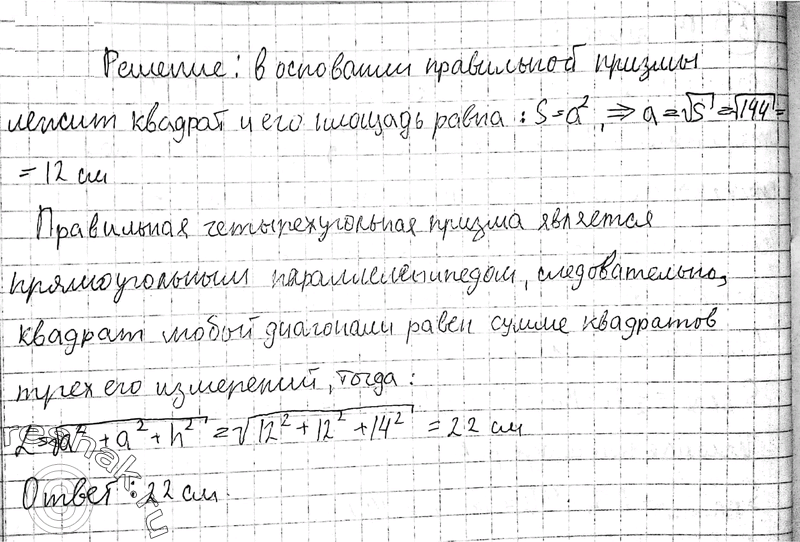 Решение: в основании правильной призмы
лежит квадрат и его площадь равна: S=a², ⇒ a=√S=√144=
=12 см
Правильная четырехугольная призма является
прямоугольным параллелепипедом, следовательно,
квадрат любой диагонали равен сумме квадратов
трех его измерений, тогда:
L=√a²+a²+h²=√12²+12²+14²=22 см
Ответ: 22 см.
reshak.ru